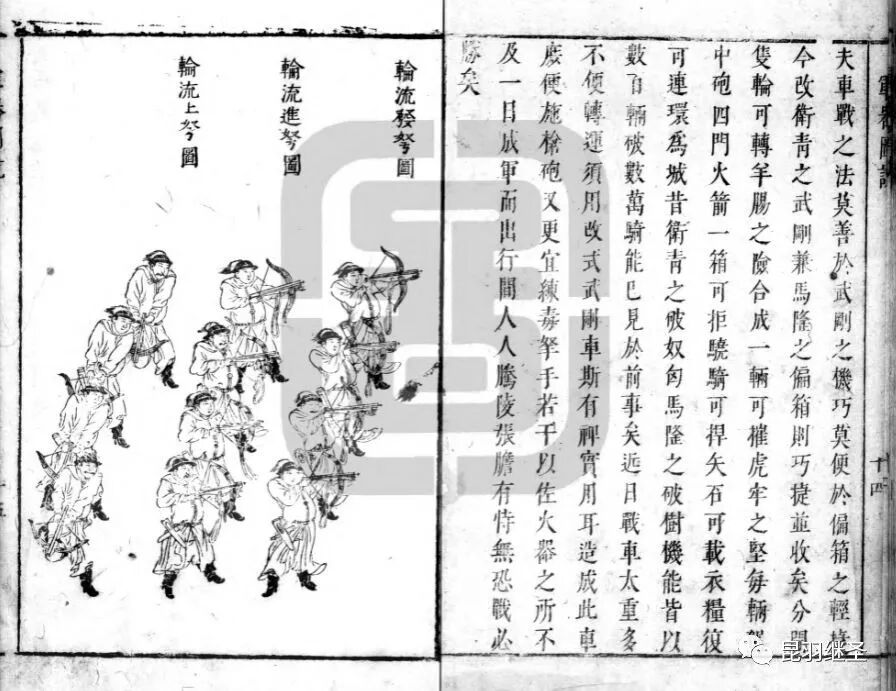 十四
夫車戰之法莫善於武剛之機巧莫便於偏箱之輕捷
今改衛青之武剛兼馬隆之偏箱則巧捷並收矣分開
隻輪可轉羊腸之險合成一輛可摧虎牢之堅每輛駕
中砲四門火箭一箱可拒驍騎可捍矢石可載衣糧復
可連環爲城昔衛青之破奴匈馬隆之破樹機能皆以
數百輛破數萬騎能已見於前事矣近日戰車太重多
不便轉運須用改式武剛車斯有裨實用耳造成此車
庶便施槍砲又更宜練毒弩手若干以佐火器之所不
及一日成軍而出行間人人騰陵張膽有恃無恐戰必
勝矣
輪流發弩圖
輪流進弩圖
輪流上弩圖
昆羽继圣